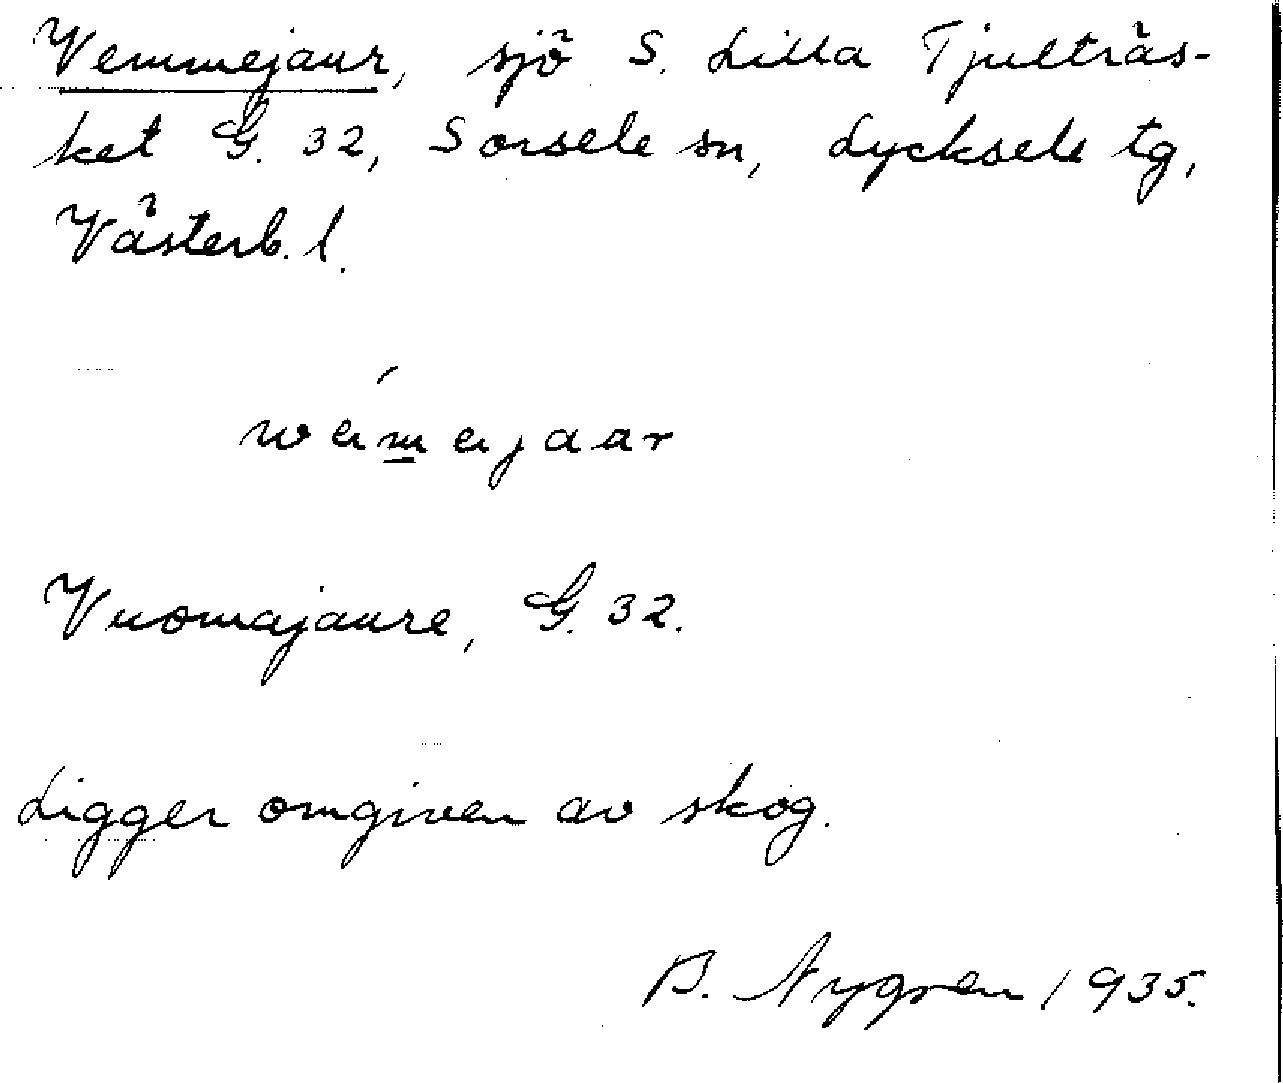 Vemmejaur, sjö S. Lilla Tjulträs-
ket G. 32, Sorsele sn, Lycksele tg,
Västerb. l.
Vuomajaure, G. 32.
Ligger omgiven av skog.
B. Nygren 1935.